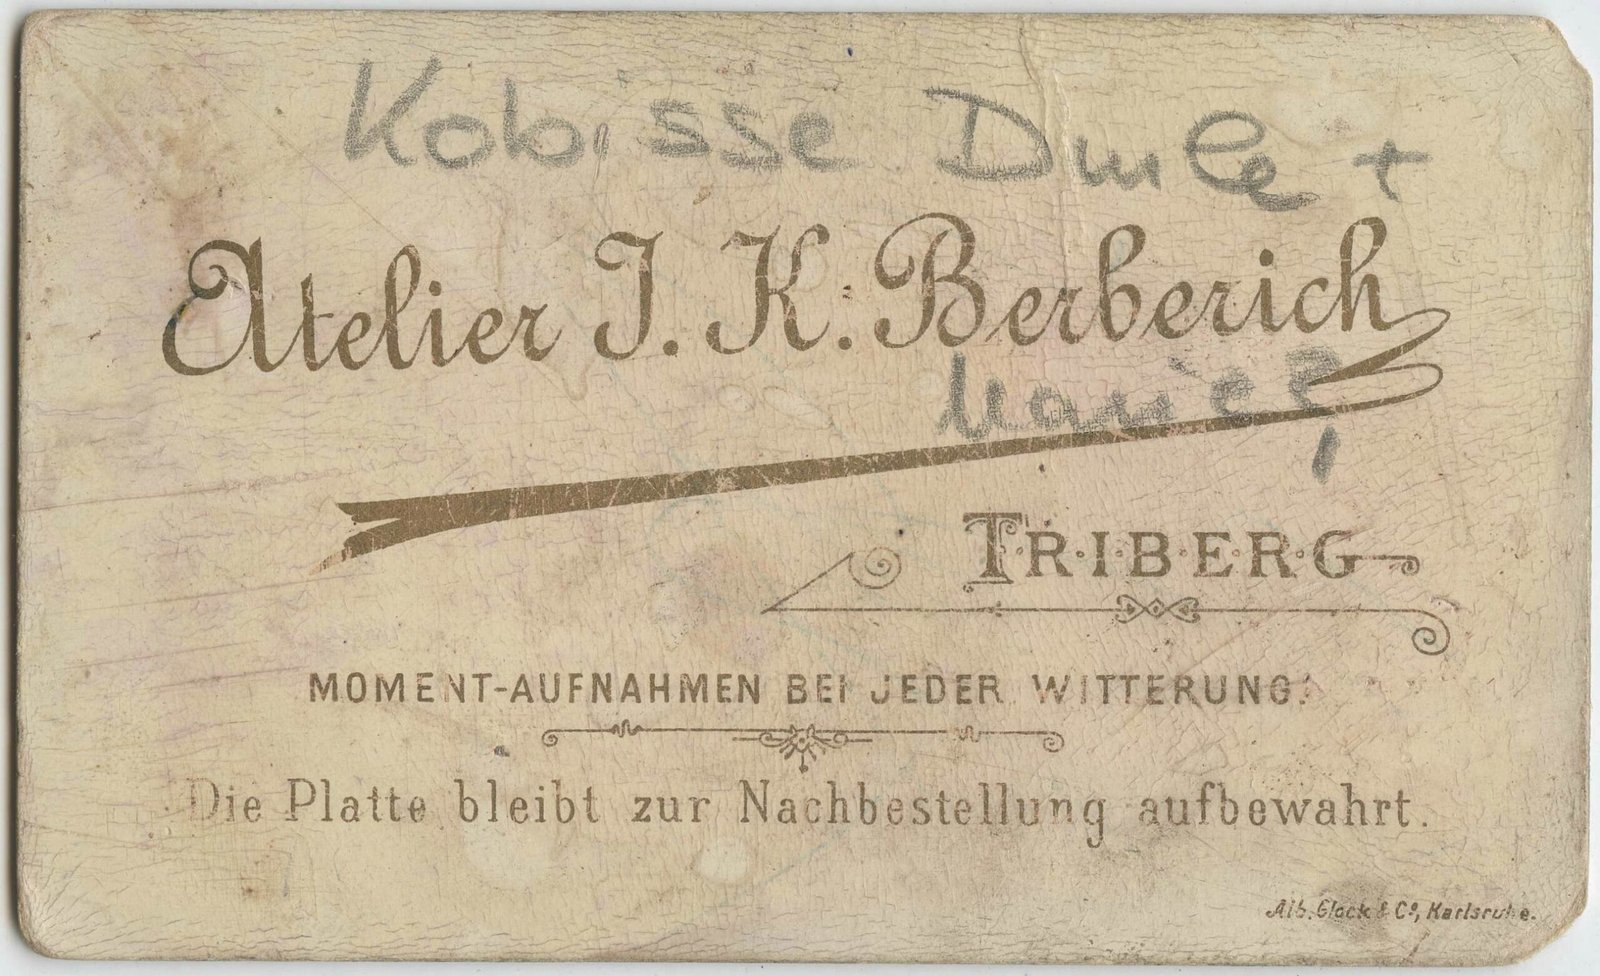 Kobisse
+
Atelier J. K. Berberich
TRIBERG
MOMENT-AUFNAHMEN BEI JEDER WITTERUNG.
Die Platte bleibt zur Nachbestellung aufbewahrt.
Alb. Glock & Co, Karlsruhe.